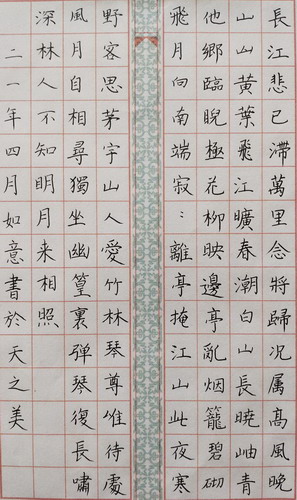 長江悲已滯萬里念將歸况属高風晚
山山黃葉飛江曠春潮白山長曉岫青
他鄉臨睨極花柳映邊亭亂烟籠碧砌
飛月向南端寂：離亭掩江山此夜寒
野客思茅宇山人愛竹林琴尊唯待處
風月自相尋獨坐幽篁裏彈琴復長嘯
深林人不知明月来相照
二一年四月如意書於天之美